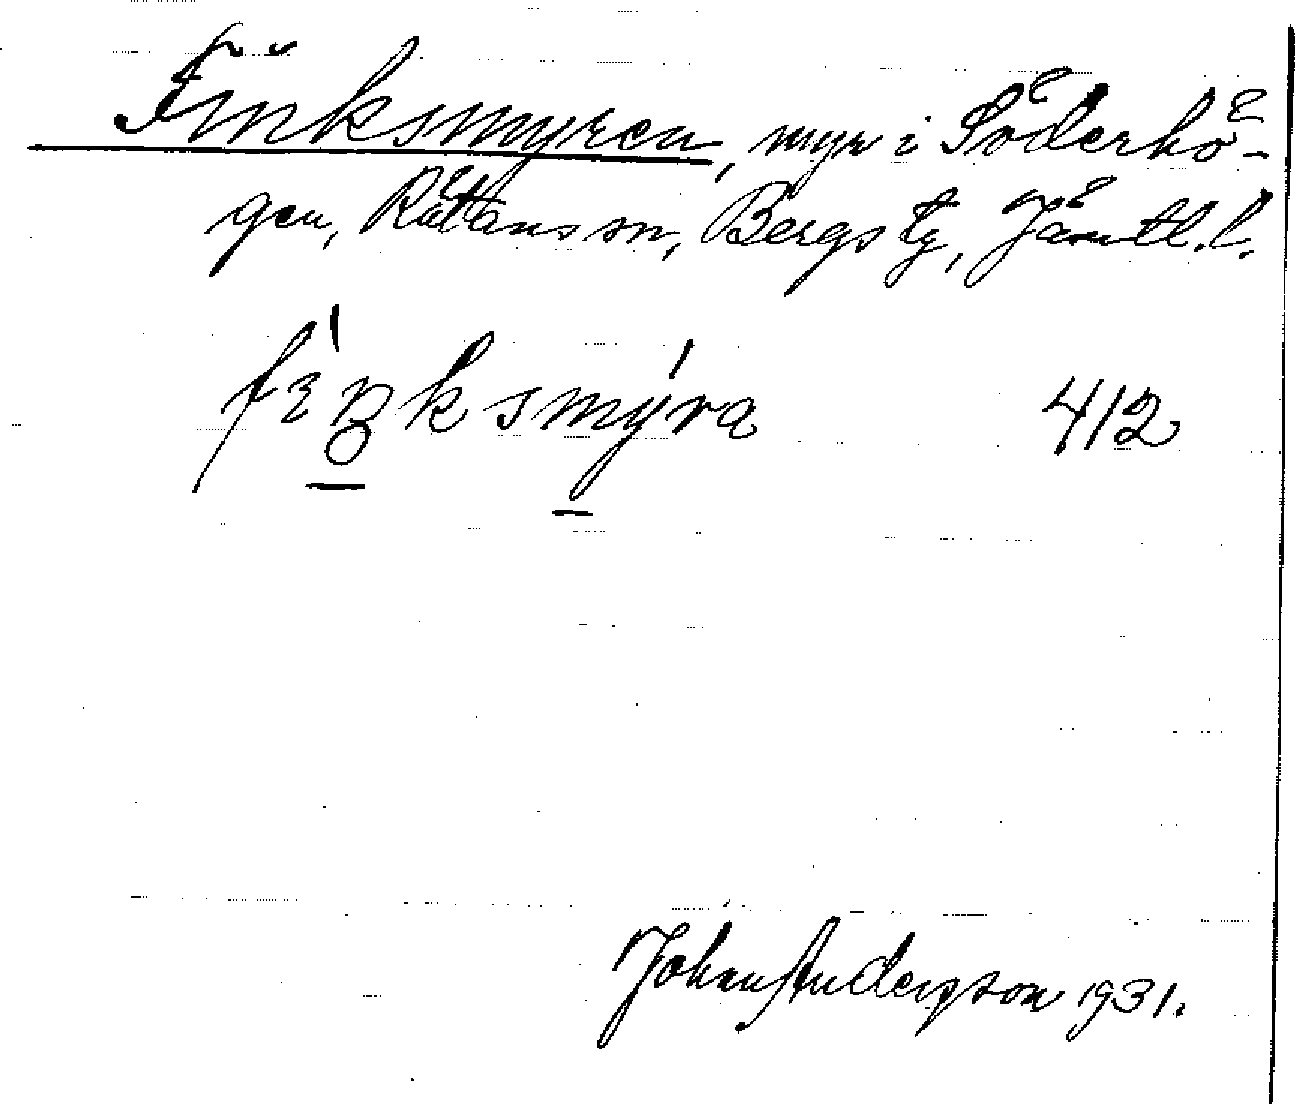 Finksmyren, myr i Söderhö-
gen, Rätans sn, Bergs tg, Jämtl. l.
412
Johan Anderson 1931.